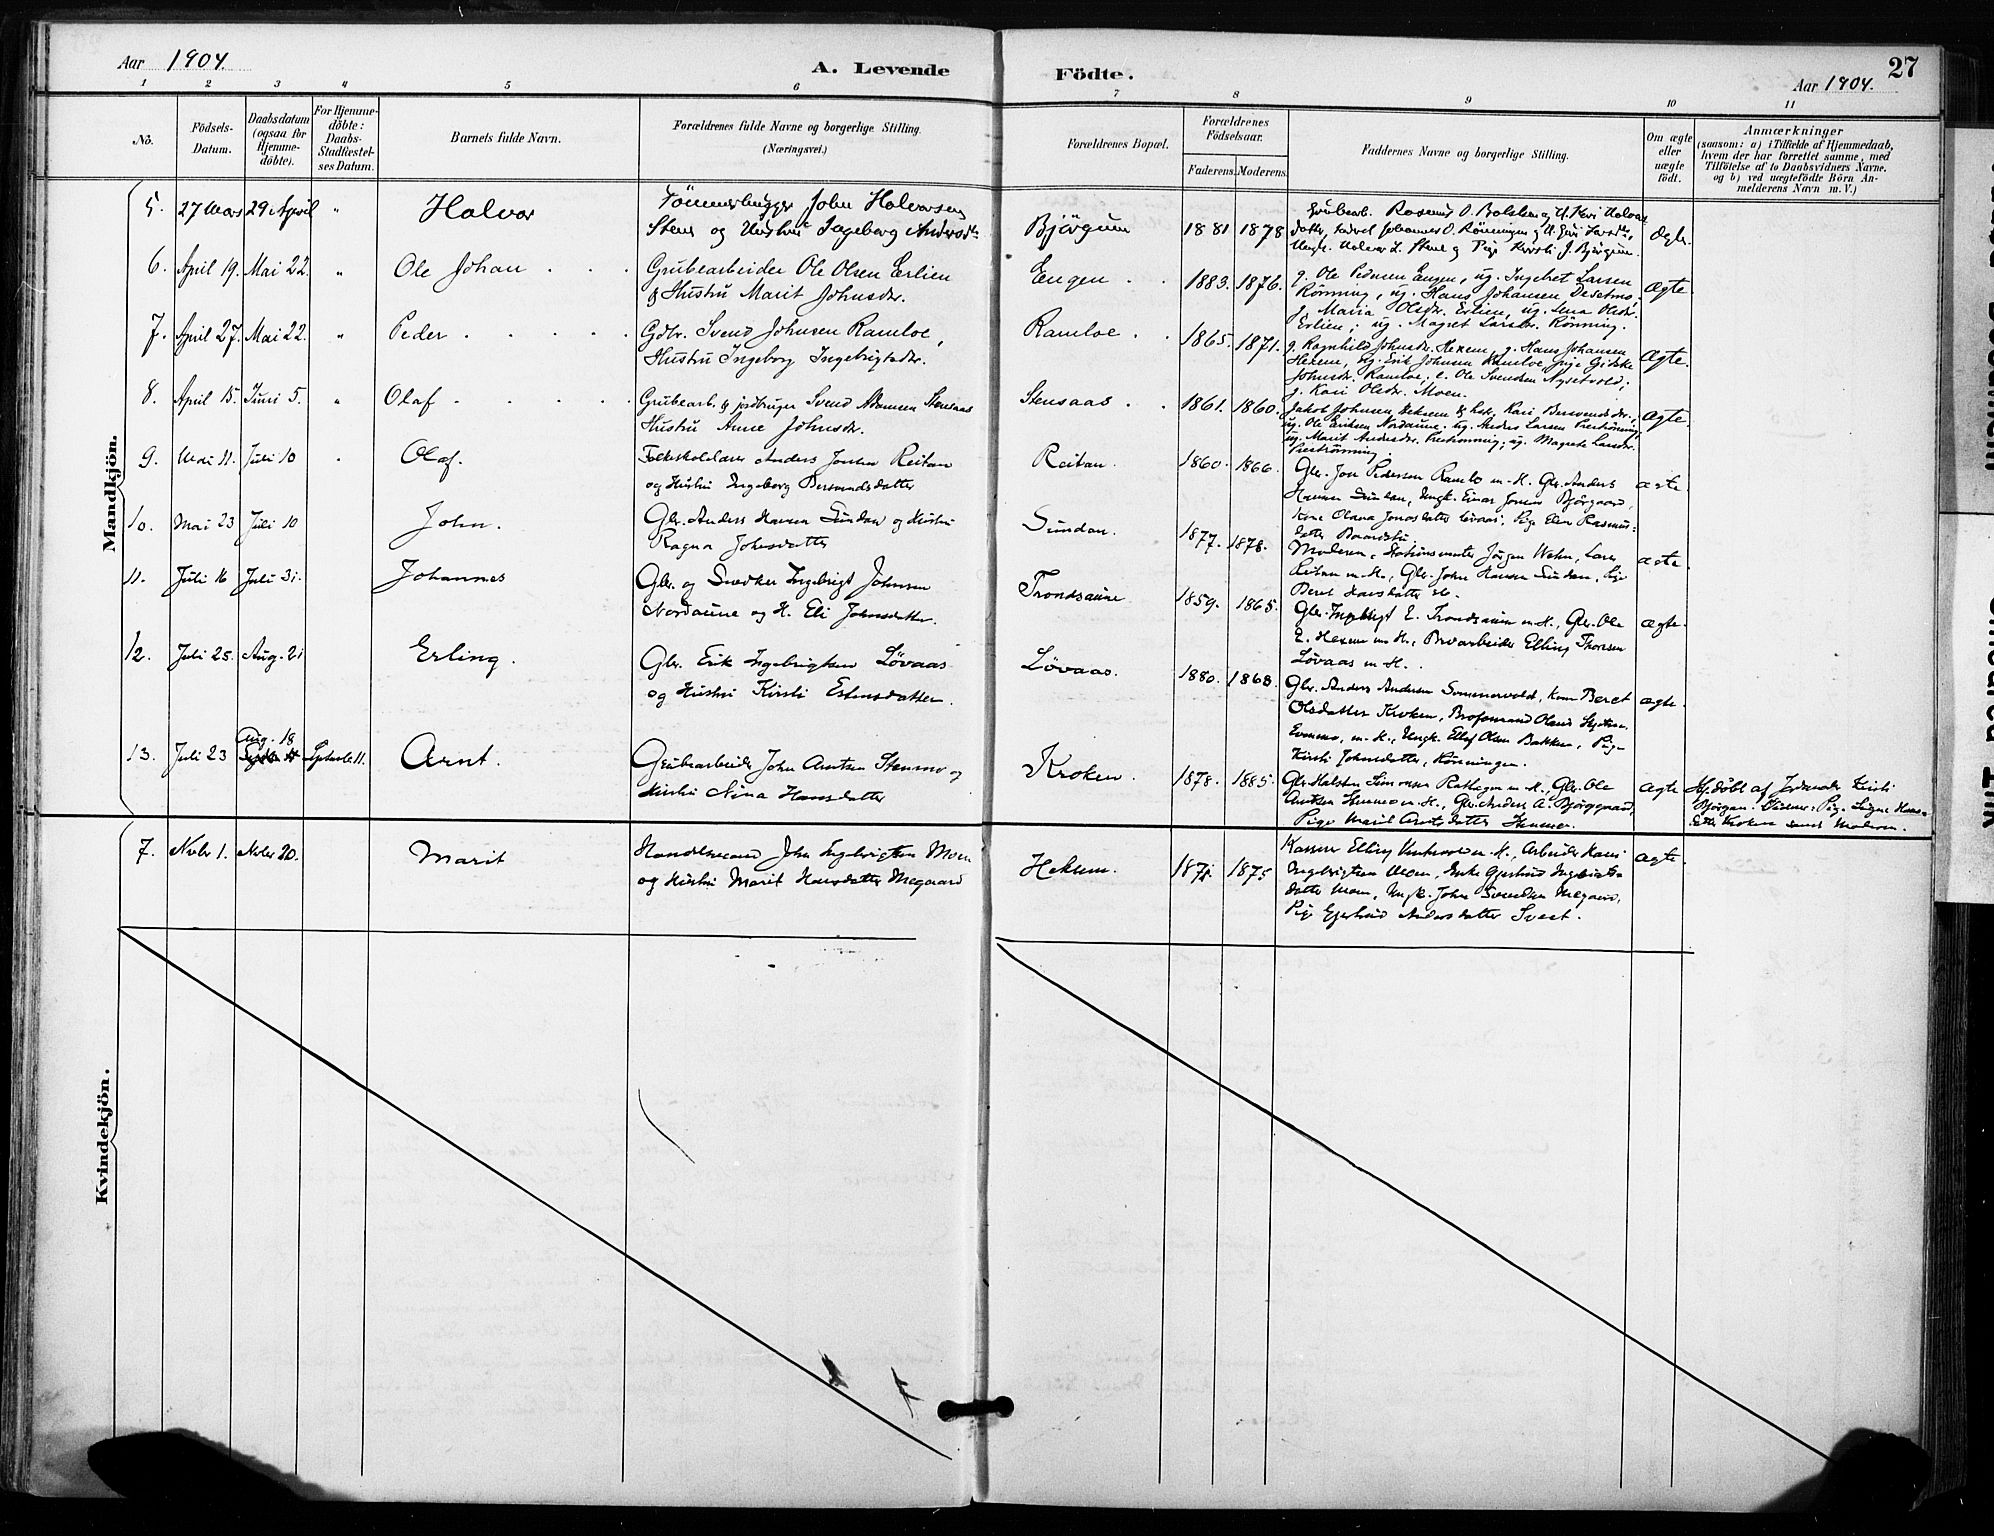 Aar 1904.
A. Levende Födte.
27
Aar 1904.
1 2 3 4 5 6 7 8 9 10 11
No.
Födsels-Datum.
Daabsdatum (ogsaa for Hjemme-döbte).
For Hjemme-döbte: Daabs-Stadfæstel-ses Datum.
Barnets fulde Navn.
Forældrenes fulde Navne og borgerlige Stilling.
(Næringsvei.)
Forældrenes Bopæl.
Forældrenes Födselsaar.
Faderens. Moderens.
Faddernes Navne og borgerlige Stilling.
Om ægte eller uægte födt.
Anmærkninger
(saasom: a) i Tilfælde af Hjemmedaab,
hvem der har forrettet samme, med
Tilföielse af to Daabsvidners Navne.
og b) ved uægtefödte Börn An-
melderens Navn m. V.)
Mandkjön.
5. 27 Mars 29 April " Halvor
Tömmerhugger John Halvorsen
Stene og Hustru Ingeborg Andersdtr
Björgum 1881 1878
Grubearb. Rasmus O. Bolsken og H. Kari Halvors
datter, Johannes O. Rönningen og H. Guri
Ungk. Halvor L. Stene og Pige Kirsti J. Björgum.
Ægte.
6. April 19. Mai 22. " Ole Johan
Grubearbeider Ole Olsen Erlien
& Hustru Marit Johnsdr.
Engen 1883. 1876.
g. Ole Pedersen Engen, ug. Ingebret Larsen
Rönning, ug. Hans Johansen Desetmo,
g. Maria Olsdr. Erlien, ug. Lena Olsdr.
Erlien, ug. Magret Larsdr. Rönning.
Ægte.
7. April 27. Mai 22. " Peder
Gdbr. Svend Johnsen Ramloe,
Hustru Ingeborg Ingebrigtsdr.
Ramloe 1865. 1871.
g. Ragnhild Johnsdr. Hexem, g. Hans Johansen
Hexem, ug. Erik Johnsen Ramloe, pige Gidske
Johnsdr. Ramloe, e. Ole Svendsen Nysetvold,
g. Kari Olsdr. Moen.
Ægte.
8. April 15. Juni 5. " Olaf
Grubearb. & jordbruger Svend Adamsen Stensaas
Hustru Anne Johnsdr.
Stensaas 1861. 1860.
Jakob Johnsen Heksem & hst. Kari Bersvendsdr.,
ug. Ole Eriksen Nordaune, ug. Anders Larsen Preströnning,
ug. Marit Andersdr. Preströnning, ug. Magrete Larsdr.
Preströnning.
Ægte.
9. Mai 11. Juli 10 Olaf.
Folkeskolelærer Anders Jonsen Reitan
og Hustru Ingeborg Bersvendsdatter
Reitan. 1860. 1866.
Gbr. Jon Pedersen Ramlo m. H. Gbr. Anders
Hansen Sundan, Ungk. Einar Jonsen Björgaard,
Kone Olava Jonasdatter Lövaas, Pige Elen Rasmus-
datter
ægte.
10. Mai 23 Juli 10 John.
Gbr. Anders Hansen Sundan og Hustru
Ragna Johnsdatter
Sundan. 1877. 1878.
Moderen, Stationsmester Jörgen Wehn, Lærer
Reitan m. H., Gbr. John Hansen Sundan, Pige
Beret Hansdatter
ægte
11. Juli 16 Juli 31. Johannes
Gbr. og Snedker Ingebrigt Johnsen
Nordaune og H. Eli Johnsdatter.
Trondsaune 1859. 1865.
Gbr. Ingebrigt E. Trondsaune m. H., Gbr. Ole
E. Hexem m. H., Elling Thoresen
Lövaas m. H.
ægte.
12. Juli 25. Aug. 21 Erling.
Gbr. Erik Ingebrigtsen Lövaas
og Hustru Kirsti Estensdatter.
Lövaas. 1880. 1868.
Gbr. Anders Andersen Sommervold, Kone Beret
Olsdatter Kroken,
m. H., Ungk. Ellef Olsen Bakken, Pige
Kirsti Johnsdatter, Rönningen.
ægte.
13. Juli 23 Aug. 18 Septbr. 11. Arnt.
Grubearbeider John Arntsen Stenmo og
Hustru Nina Hansdatter
Kroken. 1878. 1885.
Gbr. Halsten Simonsen m. H., Gbr. Ole
Arntsen Stenmo m. H., Gbr. Anders A. Björgaard,
Pige Marit Arntsdatter Stenmo.
ægte
Hj. döbt af Kirsti
Björgan. Vidner: Pige Signe Hans-
datter Kroken samt Moderen.
Kvindekjön.
7. Novbr 1. Novbr 20. Marit
Handelsmand John Ingebrigtsen Moen
og Hustru Marit Hansdatter Megaard
Heksem. 1871. 1875
Kasserer Elling m. H., Arbeider Hans
Ingebrigtsen Moen, Enke Gjertrud Ingebrigts
datter Moen, Ungk. John Svendsen Megaard,
Pige Gjertrud Andersdatter Svest.
ægte.